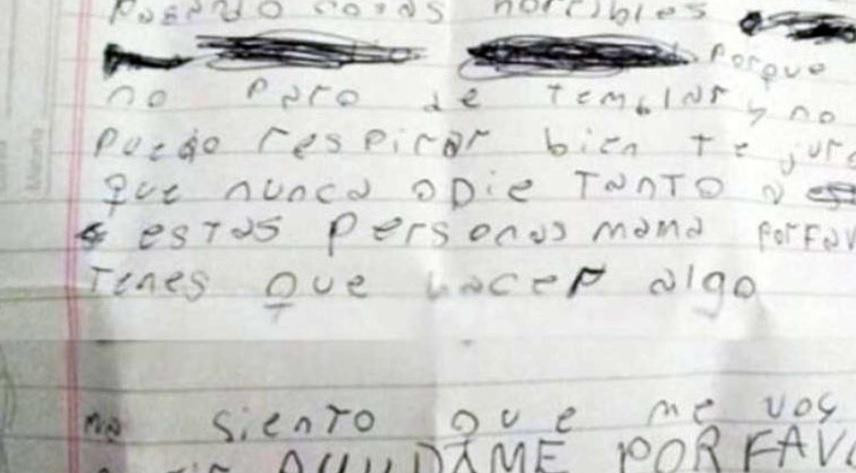 cosas horribles
Porque
no Paro de Temblar y no
Puedo respirar bien Te jura
que nunca odie TanTo a
a esTas Personas mama PorFav
Tenes que hacer algo
me siento que me voy
AYUDAME POR FAV